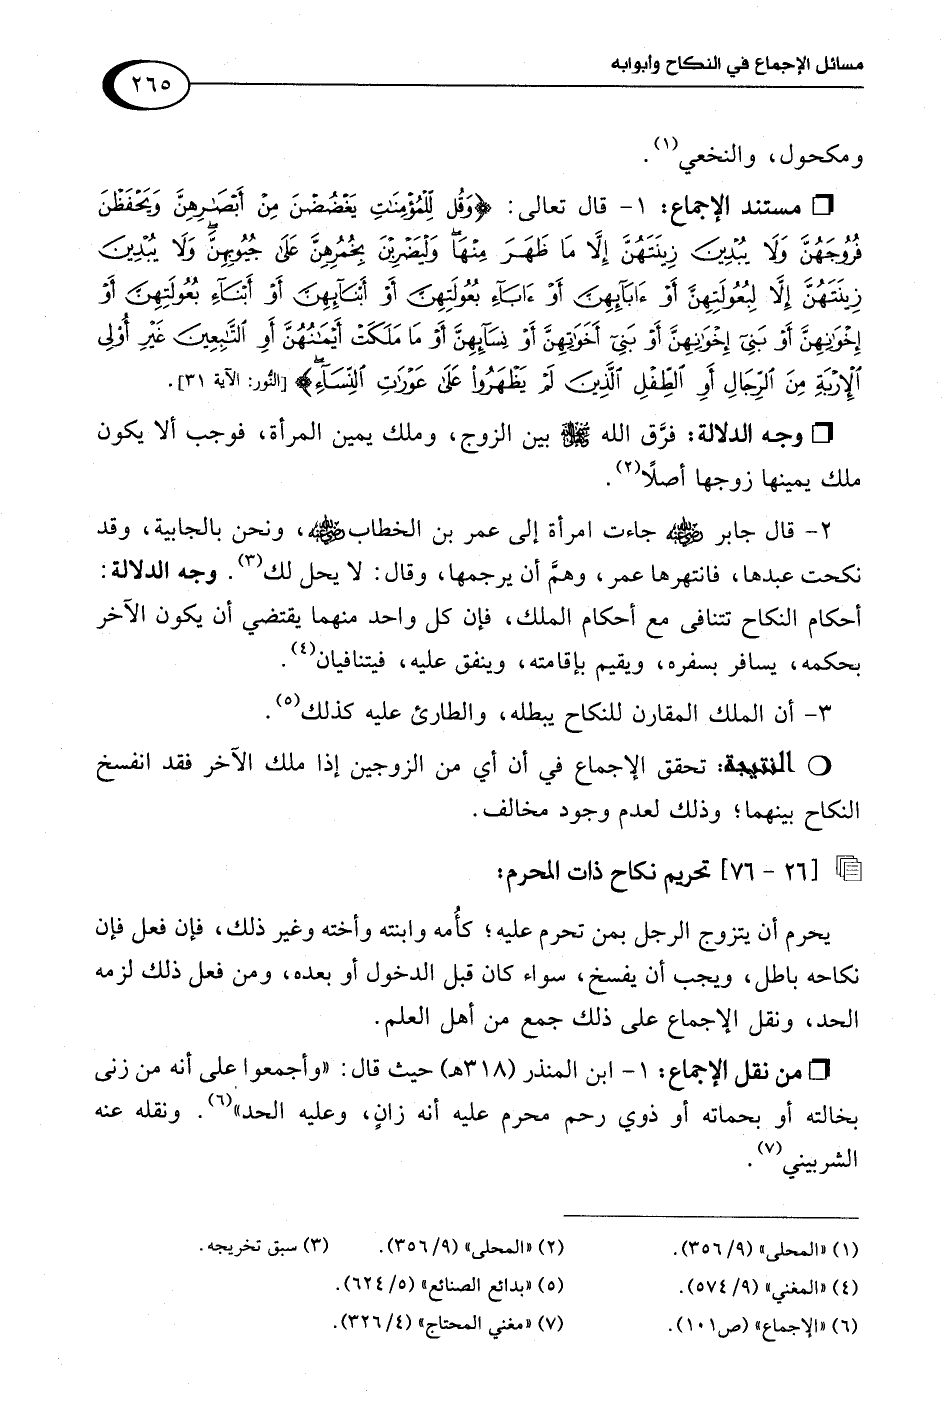 مسائل الإجماع في النكاح وأبوابه
٢٦٥
ومكحول، والنخعي(١).
❒ مستند الإجماع: ١- قال تعالى: ﴿وَقُل لِّلْمُؤْمِنَٰتِ يَغْضُضْنَ مِنْ أَبْصَٰرِهِنَّ وَيَحْفَظْنَ
فُرُوجَهُنَّ وَلَا يُبْدِينَ زِينَتَهُنَّ إِلَّا مَا ظَهَرَ مِنْهَاۖ وَلْيَضْرِبْنَ بِخُمُرِهِنَّ عَلَىٰ جُيُوبِهِنَّۖ وَلَا يُبْدِينَ
زِينَتَهُنَّ إِلَّا لِبُعُولَتِهِنَّ أَوْ ءَابَآئِهِنَّ أَوْ ءَابَآءِ بُعُولَتِهِنَّ أَوْ أَبْنَآئِهِنَّ أَوْ أَبْنَآءِ بُعُولَتِهِنَّ أَوْ
إِخْوَٰنِهِنَّ أَوْ بَنِيٓ إِخْوَٰنِهِنَّ أَوْ بَنِيٓ أَخَوَٰتِهِنَّ أَوْ نِسَآئِهِنَّ أَوْ مَا مَلَكَتْ أَيْمَٰنُهُنَّ أَوِ ٱلتَّٰبِعِينَ غَيْرِ أُو۟لِى
ٱلْإِرْبَةِ مِنَ ٱلرِّجَالِ أَوِ ٱلطِّفْلِ ٱلَّذِينَ لَمْ يَظْهَرُوا۟ عَلَىٰ عَوْرَٰتِ ٱلنِّسَآءِۖ﴾ [النُّور: الآية ٣١].
❒ وجه الدلالة: فرَّق الله ﷻ بين الزوج، وملك يمين المرأة، فوجب ألا يكون
ملك يمينها زوجها أصلًا(٢).
٢- قال جابر رضي الله عنه جاءت امرأة إلى عمر بن الخطاب رضي الله عنه، ونحن بالجابية، وقد
نكحت عبدها، فانتهرها عمر، وهمَّ أن يرجمها، وقال: لا يحل لك(٣). وجه الدلالة:
أحكام النكاح تتنافى مع أحكام الملك، فإن كل واحد منهما يقتضي أن يكون الآخر
بحكمه، يسافر بسفره، ويقيم بإقامته، وينفق عليه، فيتنافيان(٤).
٣- أن الملك المقارن للنكاح يبطله، والطارئ عليه كذلك(٥).
❍ النتيجة: تحقق الإجماع في أن أي من الزوجين إذا ملك الآخر فقد انفسخ
النكاح بينهما؛ وذلك لعدم وجود مخالف.
[٢٦ - ٧٦] تحريم نكاح ذات المحرم:
يحرم أن يتزوج الرجل بمن تحرم عليه؛ كأُمه وابنته وأخته وغير ذلك، فإن فعل فإن
نكاحه باطل، ويجب أن يفسخ، سواء كان قبل الدخول أو بعده، ومن فعل ذلك لزمه
الحد، ونقل الإجماع على ذلك جمع من أهل العلم.
❒ من نقل الإجماع: ١- ابن المنذر (٣١٨هـ) حيث قال: «وأجمعوا على أنه من زنى
بخالته أو بحماته أو ذوي رحم محرم عليه أنه زانٍ، وعليه الحد»(٦). ونقله عنه
الشربيني(٧).
(١) «المحلى» (٩/ ٣٥٦). (٢) «المحلى» (٩/ ٣٥٦). (٣) سبق تخريجه.
(٤) «المغني» (٩/ ٥٧٤). (٥) «بدائع الصنائع» (٥/ ٦٢٤).
(٦) «الإجماع» (ص١٠١). (٧) «مغني المحتاج» (٤/ ٣٢٦).